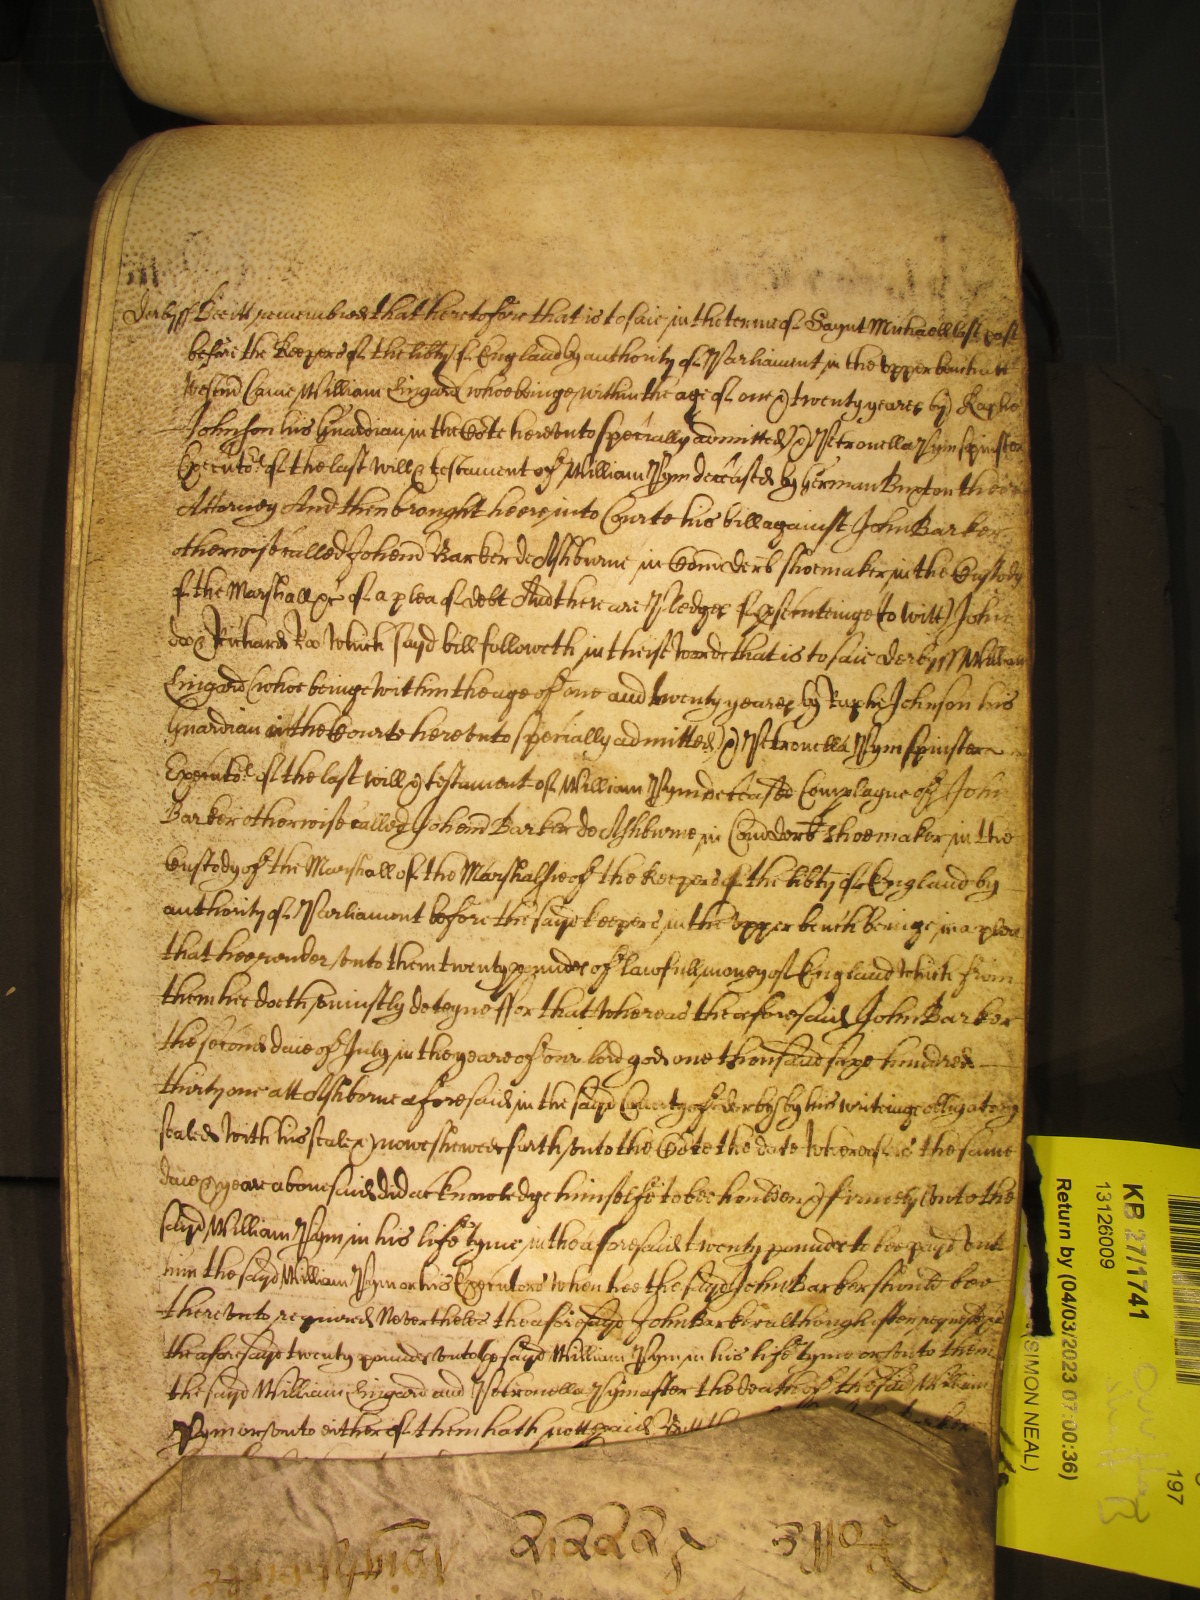 Derbyss Bee itt remembred that heretofore that is to saie in the terme of Saynt Michaell last past
before the Keepers of the libtye of England by authority of Parliament in the upper bench att
Westm̄ Came William Lingard whoe beinge within the age of one & twenty yeares by Raphe
Johnson his Guardian in the Co͛te hereunto specially admitted & Petronella Pym spinster
Executo͛s of the last will & testament of William Pym deceased by German Buxton there
Attorney And then brought heere into Courte his bill against John Barker
otherwise called Johem̄ Barker de Ashburne in Com̄ Derb shoemaker in the Custody
of the Marshall &c of a plea of debt And there are Pledges of psecuteinge (to witt) John
doo & Richard Roo Which sayd bill followeth in theise words that is to saie Derbyss William
Lingard (whoe beinge within the age of one and twenty yeares by Raphe Johnson his
Guardian in the Courte hereunto specially admitted) & Petronella Pym Spinster
Executo͛s of the last will & testament of William Pym deceased Complayne of John
Barker otherwise called Johem̄ Barker de Ashburne in Com̄ Derb shoemaker in the
Custody of the Marshall of the Marshalsie of the Keepers of the libty of England by
authority of Parliament before the sayd keepers in the upper bench beinge in a plea
that hee render unto them twenty pounds of lawfull money of England which from
them hee doth uniustly deteyne ffor that Whereas the aforesaid John Barker
the second daie of July in the yeare of our lord god one thousand sixe hundred
thirty one att Ashborne aforesaid in the sayd County of Derby by his writinge obligatory
sealed with his seale & nowe shewed forth unto the Co͛te the date whereof is the same
daie & yeare abovesaid did acknowledge himselfe to bee bounden & firmely unto the
sayd William Pym in his life tyme in the aforesaid twenty pounds to bee payd unto
him the sayd William Pym or his Executors when hee the sayd John Barker should bee
thereunto required Neverthelesse the aforesayd John Barker although often requested
the aforesayd twenty pounds unto the sayd William Pym in his life tyme or unto them
the sayd William Lingard and Petronella Pym after the death of the said William
Pym or unto either of them hath nott paid But
KB 27/1741
13126009
Return by (04/03/2023 07:00:36)
(SIMON NEAL)
197